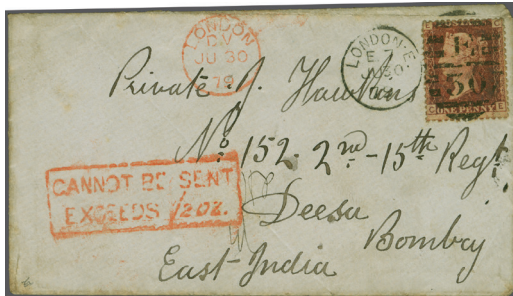 LONDON
JU 30
79
LONDON·E.
E 7
JU 30
ONE PENNY
C E
Private J. Hawkins
No 152. 2nd - 15th Regt
CANNOT BE SENT
EXCEEDS 1/2 OZ.
Deesa
Bombay
East India